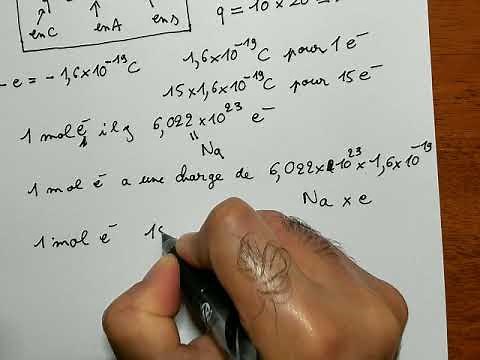 en C en A en s
q = 10 × 20
- e = - 1,6×10⁻¹⁹ C 1,6×10⁻¹⁹ C pour 1 e⁻
15×1,6×10⁻¹⁹ C pour 15 e⁻
1 mol e⁻ il y 6,022×10²³ e⁻
=
Na
1 mol e⁻ a une charge de 6,022×10²³×1,6×10⁻¹⁹
Na × e
1 mol e⁻